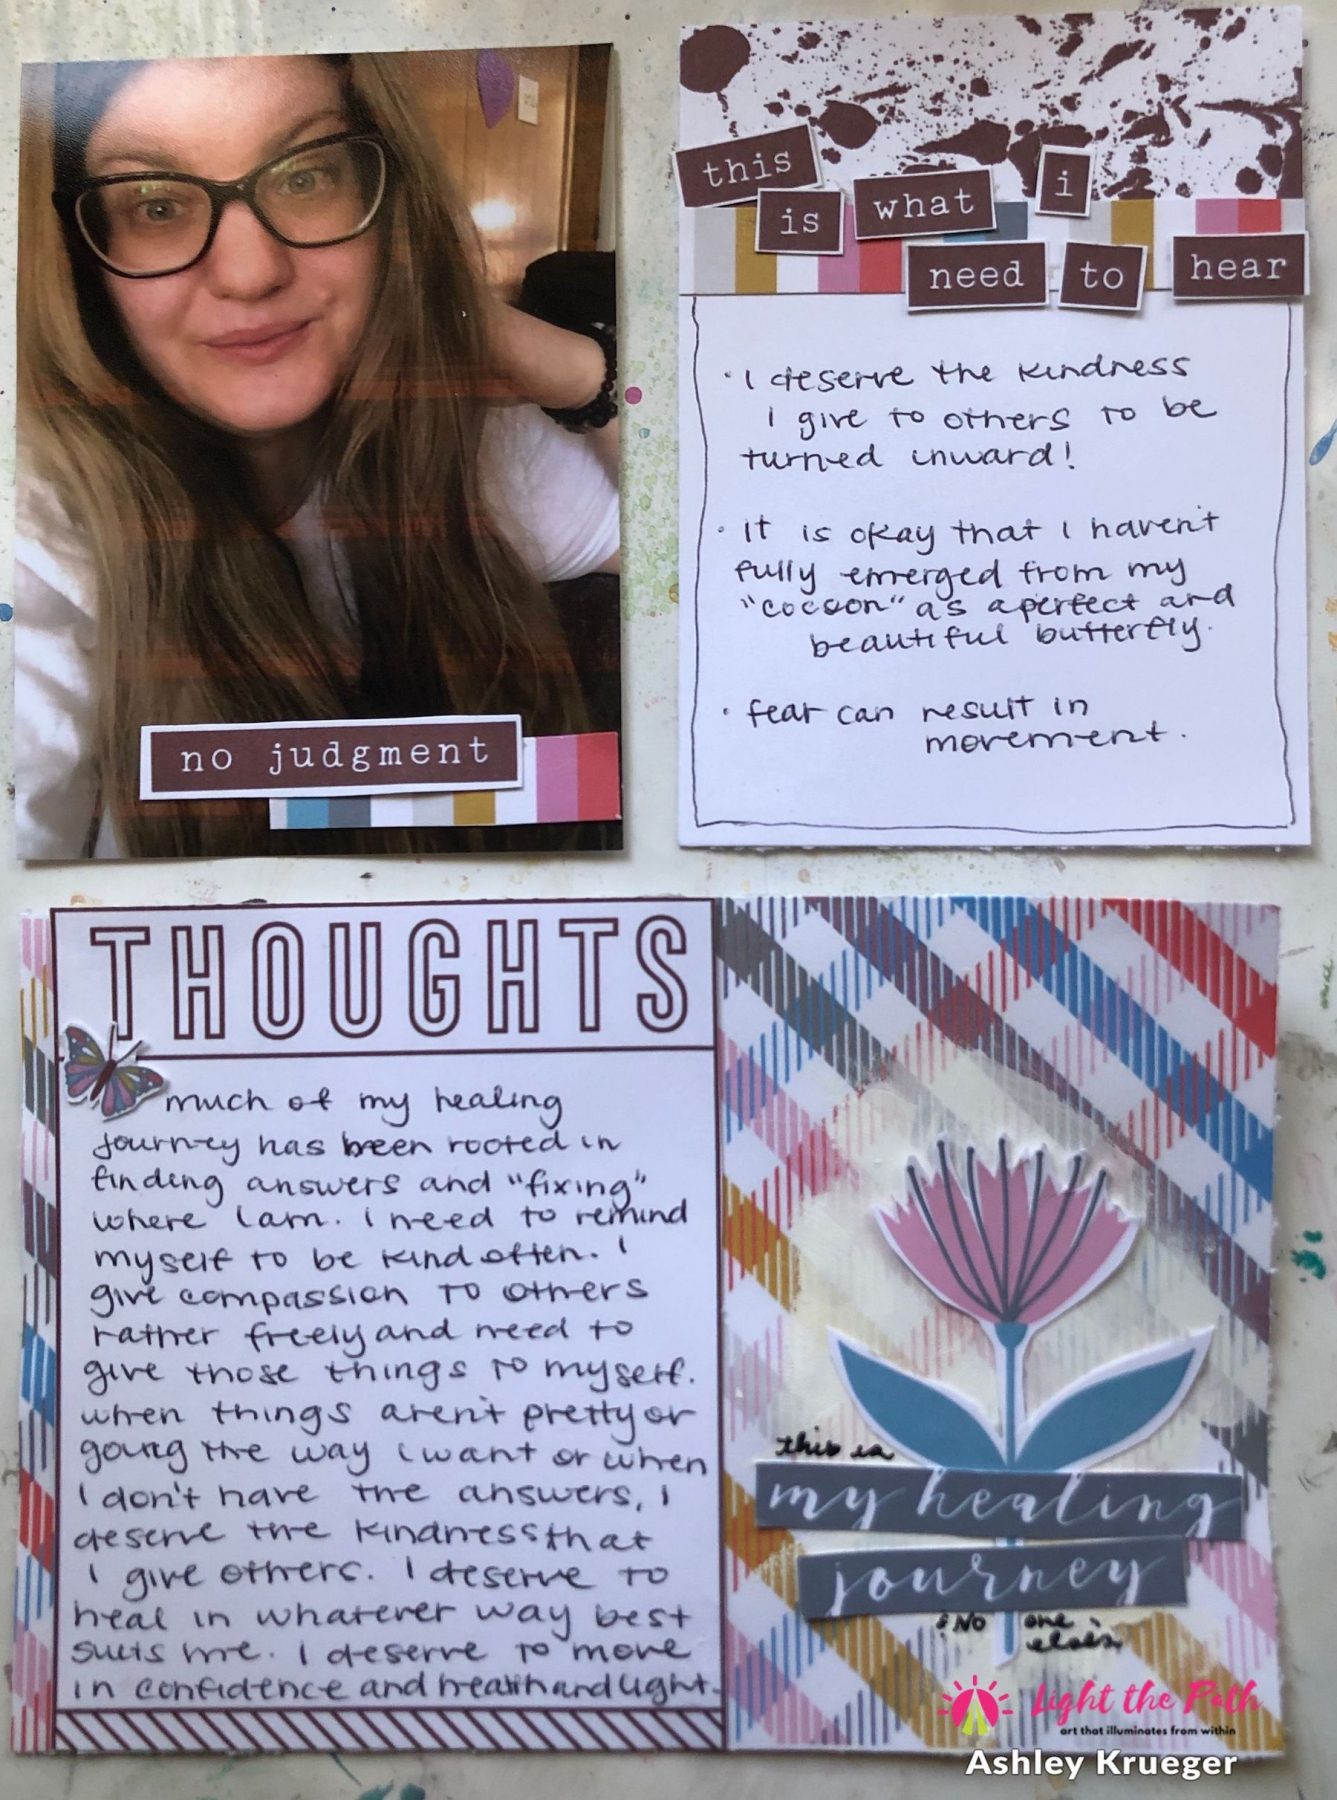 no judgment
this is what i
need to hear
· I deserve the kindness
I give to others to be
turned inward!
· It is okay that I haven't
fully emerged from my
"cocoon" as a perfect and
beautiful butterfly.
· fear can result in
movement.
THOUGHTS
much of my healing
journey has been rooted in
finding answers and "fixing"
where I am. I need to remind
myself to be kind often. I
give compassion to others
rather freely and need to
give those things to myself.
when things aren't pretty or
going the way I want or when
I don't have the answers, I
deserve the kindness that
I give others. I deserve to
heal in whatever way best
suits me. I deserve to move
in confidence and health and light.
this is
my healing
journey
& No one
else's
Light the Path
art that illuminates from within
Ashley Krueger